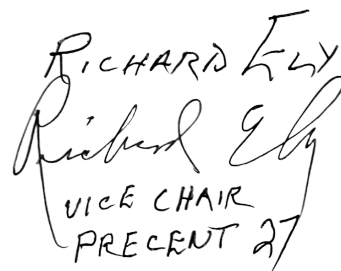 RICHARD ELY
Richard Ely
VICE CHAIR
PRECENT 27